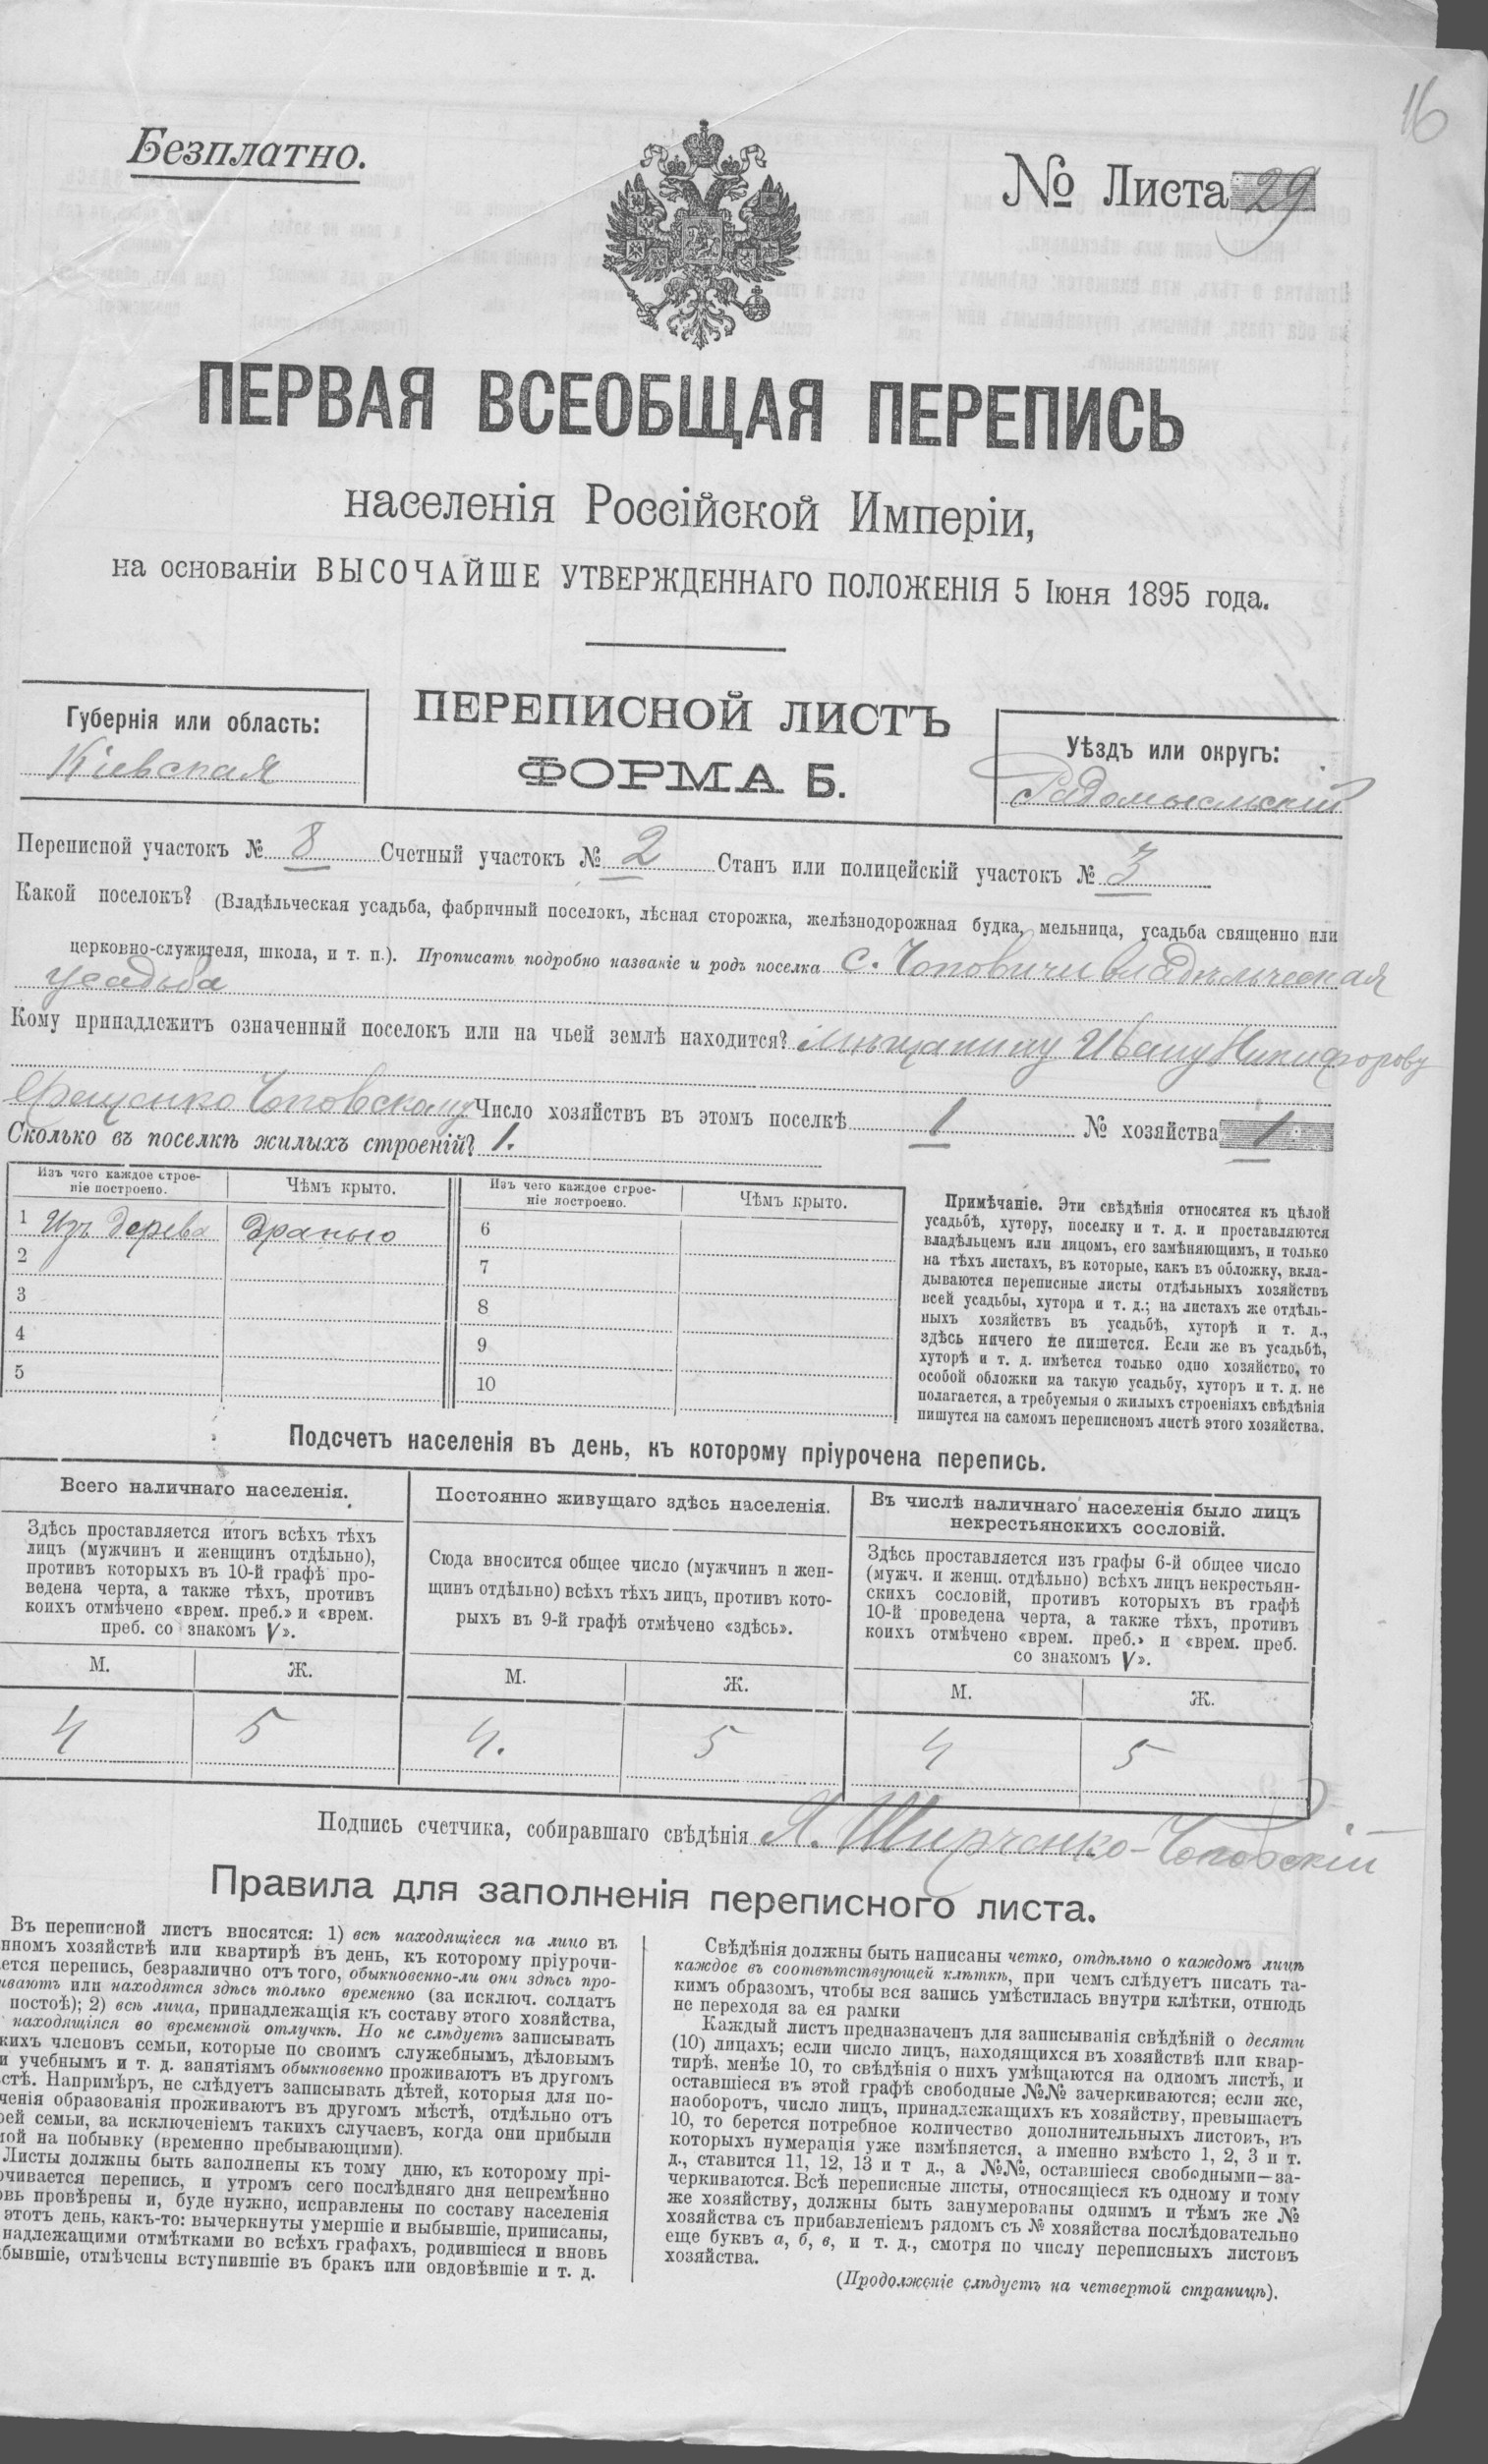 16
Безплатно.
№ Листа 29
ПЕРВАЯ ВСЕОБЩАЯ ПЕРЕПИСЬ
населенія Россійской Имперіи,
на основаніи ВЫСОЧАЙШЕ УТВЕРЖДЕННАГО ПОЛОЖЕНІЯ 5 Іюня 1895 года.
ПЕРЕПИСНОЙ ЛИСТЪ
ФОРМА Б.
Губернія или область:
Кіевская
Уѣздъ или округъ:
Радомысльскій
Переписной участокъ № 8 Счетный участокъ № 2 Станъ или полицейскій участокъ № 3
Какой поселокъ? (Владѣльческая усадьба, фабричный поселокъ, лѣсная сторожка, желѣзнодорожная будка, мельница, усадьба священно или
церковно-служителя, школа, и т. п.). Прописать подробно названіе и родъ поселка с. Чоповичи владѣльческая
усадьба
Кому принадлежитъ означенный поселокъ или на чьей землѣ находится? Мѣщанину Ивану Никифорову
Чоповскому Число хозяйствъ въ этомъ поселкѣ 1 № хозяйства 1
Сколько въ поселкѣ жилыхъ строеній? 1.
Изъ чего каждое строе-
ніе построено.
Чѣмъ крыто.
Изъ чего каждое строе-
ніе построено.
Чѣмъ крыто.
1 Изъ дерева дранью
2
3
4
5
6
7
8
9
10
Примѣчаніе. Эти свѣдѣнія относятся къ цѣлой
усадьбѣ, хутору, поселку и т. д. и проставляются
владѣльцемъ или лицомъ, его замѣняющимъ, и только
на тѣхъ листахъ, въ которые, какъ въ обложку, вкла-
дываются переписные листы отдѣльныхъ хозяйствъ
всей усадьбы, хутора и т. д.; на листахъ же отдѣль-
ныхъ хозяйствъ въ усадьбѣ, хуторѣ и т. д.,
здѣсь ничего не пишется. Если же въ усадьбѣ,
хуторѣ и т. д. имѣется только одно хозяйство, то
особой обложки на такую усадьбу, хуторъ и т. д. не
полагается, а требуемыя о жилыхъ строеніяхъ свѣдѣнія
пишутся на самомъ переписномъ листѣ этого хозяйства.
Подсчетъ населенія въ день, къ которому пріурочена перепись.
Всего наличнаго населенія.
Здѣсь проставляется итогъ всѣхъ тѣхъ
лицъ (мужчинъ и женщинъ отдѣльно),
противъ которыхъ въ 10-й графѣ про-
ведена черта, а также тѣхъ, противъ
коихъ отмѣчено «врем. преб.» и «врем.
преб. со знакомъ V».
Постоянно живущаго здѣсь населенія.
Сюда вносится общее число (мужчинъ и жен-
щинъ отдѣльно) всѣхъ тѣхъ лицъ, противъ кото-
рыхъ въ 9-й графѣ отмѣчено «здѣсь».
Въ числѣ наличнаго населенія было лицъ
некрестьянскихъ сословій.
Здѣсь проставляется изъ графы 6-й общее число
(мужч. и женщ. отдѣльно) всѣхъ лицъ некрестьян-
скихъ сословій, противъ которыхъ въ графѣ
10-й проведена черта, а также тѣхъ, противъ
коихъ отмѣчено «врем. преб.» и «врем. преб.
со знакомъ V».
М. Ж. М. Ж. М. Ж.
4 5 4. 5 4 5
Подпись счетчика, собиравшаго свѣдѣнія Я. Ширченко-Чоповскій
Правила для заполненія переписного листа.
Въ переписной листъ вносятся: 1) всѣ находящіеся на лицо въ
нномъ хозяйствѣ или квартирѣ въ день, къ которому пріурочи-
ется перепись, безразлично отъ того, обыкновенно-ли они здѣсь про-
иваютъ или находятся здѣсь только временно (за исключ. солдатъ
постоѣ); 2) всѣ лица, принадлежащія къ составу этого хозяйства,
находящіяся во временной отлучкѣ. Но не слѣдуетъ записывать
кихъ членовъ семьи, которые по своимъ служебнымъ, дѣловымъ
и учебнымъ и т. д. занятіямъ обыкновенно проживаютъ въ другомъ
стѣ. Напримѣръ, не слѣдуетъ записывать дѣтей, которыя для по-
ченія образованія проживаютъ въ другомъ мѣстѣ, отдѣльно отъ
оей семьи, за исключеніемъ такихъ случаевъ, когда они прибыли
мой на побывку (временно пребывающими).
Листы должны быть заполнены къ тому дню, къ которому прі-
очивается перепись, и утромъ сего послѣдняго дня непремѣнно
овь провѣрены и, буде нужно, исправлены по составу населенія
этотъ день, какъ-то: вычеркнуты умершіе и выбывшіе, приписаны,
надлежащими отмѣтками во всѣхъ графахъ, родившіеся и вновь
бывшіе, отмѣчены вступившіе въ бракъ или овдовѣвшіе и т. д.
Свѣдѣнія должны быть написаны четко, отдѣльно о каждомъ лицѣ
каждое въ соотвѣтствующей клѣткѣ, при чемъ слѣдуетъ писать та-
кимъ образомъ, чтобы вся запись умѣстилась внутри клѣтки, отнюдь
не переходя за ея рамки
Каждый листъ предназначенъ для записыванія свѣдѣній о десяти
(10) лицахъ; если число лицъ, находящихся въ хозяйствѣ или квар-
тирѣ, менѣе 10, то свѣдѣнія о нихъ умѣщаются на одномъ листѣ, и
оставшіеся въ этой графѣ свободные №№ зачеркиваются; если же,
наоборотъ, число лицъ, принадлежащихъ къ хозяйству, превышаетъ
10, то берется потребное количество дополнительныхъ листовъ, въ
которыхъ нумерація уже измѣняется, а именно вмѣсто 1, 2, 3 и т.
д., ставится 11, 12, 13 и т д., а №№, оставшіеся свободными—за-
черкиваются. Всѣ переписные листы, относящіеся къ одному и тому
же хозяйству, должны быть занумерованы однимъ и тѣмъ же №
хозяйства съ прибавленіемъ рядомъ съ № хозяйства послѣдовательно
еще буквъ а, б, в, и т. д., смотря по числу переписныхъ листовъ
хозяйства.
(Продолженіе слѣдуетъ на четвертой страницѣ).